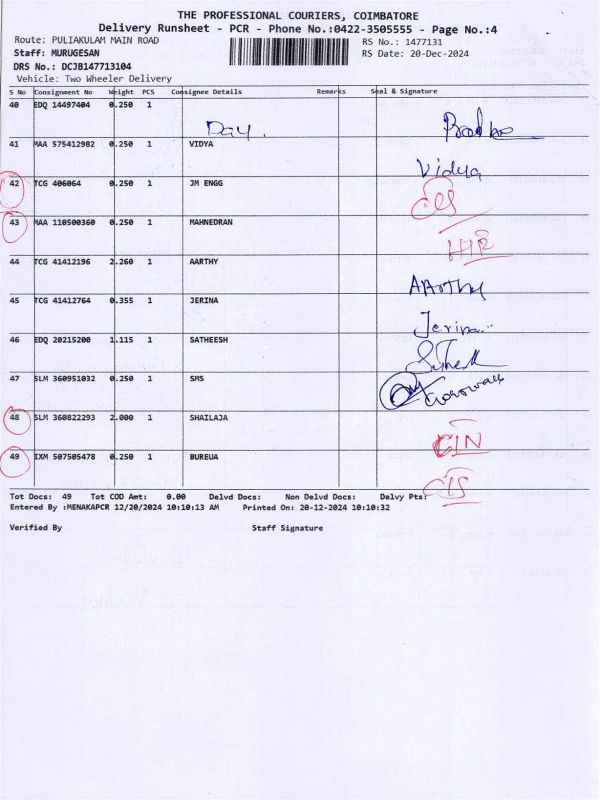 THE PROFESSIONAL COURIERS, COIMBATORE
Delivery Runsheet - PCR - Phone No.:0422-3505555 - Page No.:4
Route: PULIAKULAM MAIN ROAD RS No.: 1477131
Staff: MURUGESAN RS Date: 20-Dec-2024
DRS No.: DCJB147713104
Vehicle: Two Wheeler Delivery
S No Consignment No Weight PCS Consignee Details Remarks Seal & Signature
40 EDQ 14497404 0.250 1
Day.
41 MAA 575412982 0.250 1 VIDYA
Vidya
42 TCG 406064 0.250 1 JM ENGG
43 MAA 110500360 0.250 1 MAHNEDRAN
44 TCG 41412196 2.260 1 AARTHY
AArthy
45 TCG 41412764 0.355 1 JERINA
Jerina
46 EDQ 20215200 1.115 1 SATHEESH
47 SLM 360951032 0.250 1 SMS
48 SLM 360822293 2.000 1 SHAILAJA
CIN
49 IXM 507505478 0.250 1 BUREUA
Tot Docs: 49 Tot COD Amt: 0.00 Delvd Docs: Non Delvd Docs: Delvy Pts:
Entered By :MENAKAPCR 12/20/2024 10:10:13 AM Printed On: 20-12-2024 10:10:32
Verified By Staff Signature